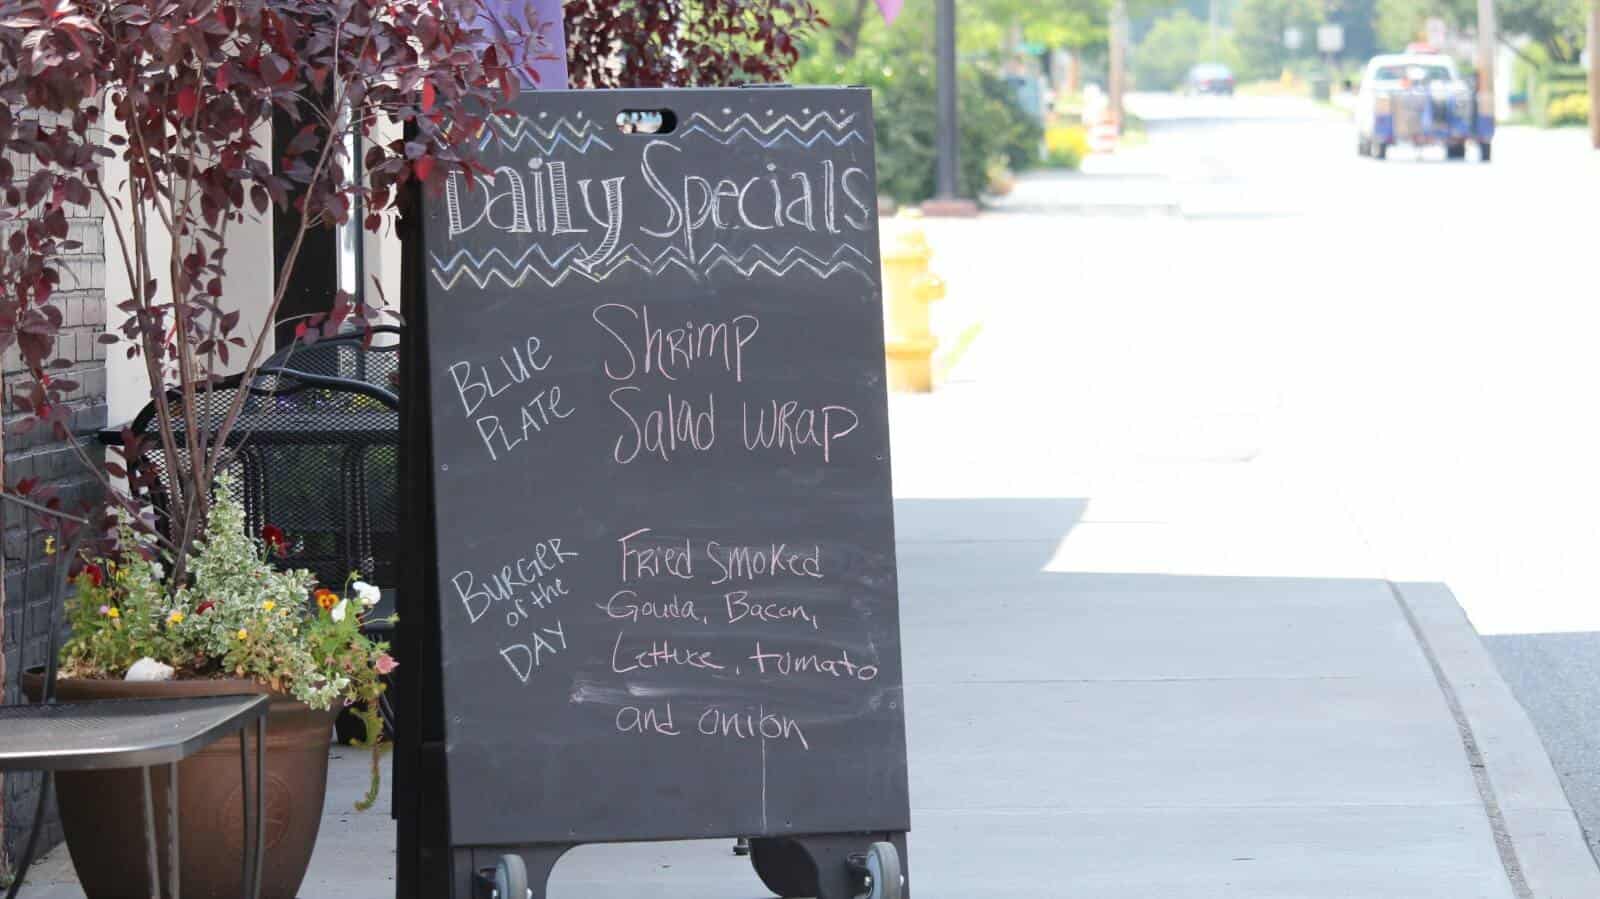 Daily Specials
BLUE
PLATE
Shrimp
Salad WRAP
BURGER
of the
DAY
Fried Smoked
Gouda, Bacon,
Lettuce, tomato
and onion